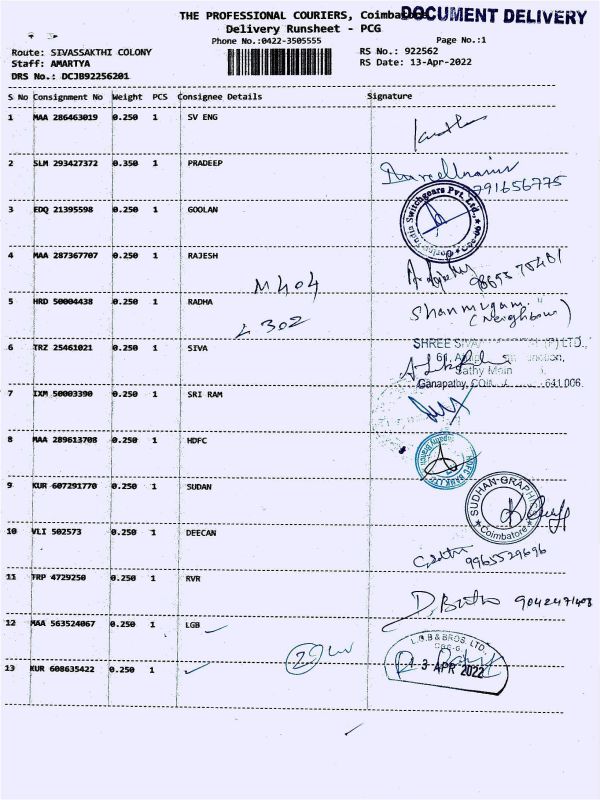 THE PROFESSIONAL COURIERS, Coimbatore
DOCUMENT DELIVERY
Delivery Runsheet - PCG
Phone No.:0422-3505555
Page No.:1
Route: SIVASSAKTHI COLONY
RS No.: 922562
Staff: AMARTYA
RS Date: 13-Apr-2022
DRS No.: DCJB92256201
S No Consignment No Weight PCS Consignee Details Signature
1 MAA 286463019 0.250 1 SV ENG
2 SLM 293427372 0.350 1 PRADEEP
791656775
3 EDQ 21395598 0.250 1 GOOLAN
Switchgears Pvt Ltd.,
4 MAA 287367707 0.250 1 RAJESH
M404
5 HRD 50004438 0.250 1 RADHA
Shanmugam.
(Neighbour)
L 302
6 TRZ 25461021 0.250 1 SIVA
SHREE SIVA (P) LTD.,
61,
Main
Ganapathy, 641 006.
7 IXM 50003390 0.250 1 SRI RAM
8 MAA 289613708 0.250 1 HDFC
HDFC BANK LTD
9 KUR 607291770 0.250 1 SUDAN
SUDHAN GRAPH
Coimbatore
10 VLI 502573 0.250 1 DEECAN
9965529696
11 TRP 4729250 0.250 1 RVR
9042471408
12 MAA 563524067 0.250 1 LGB
L.G.B & BROS. LTD.,
13 APR 2022
13 KUR 608635422 0.250 1